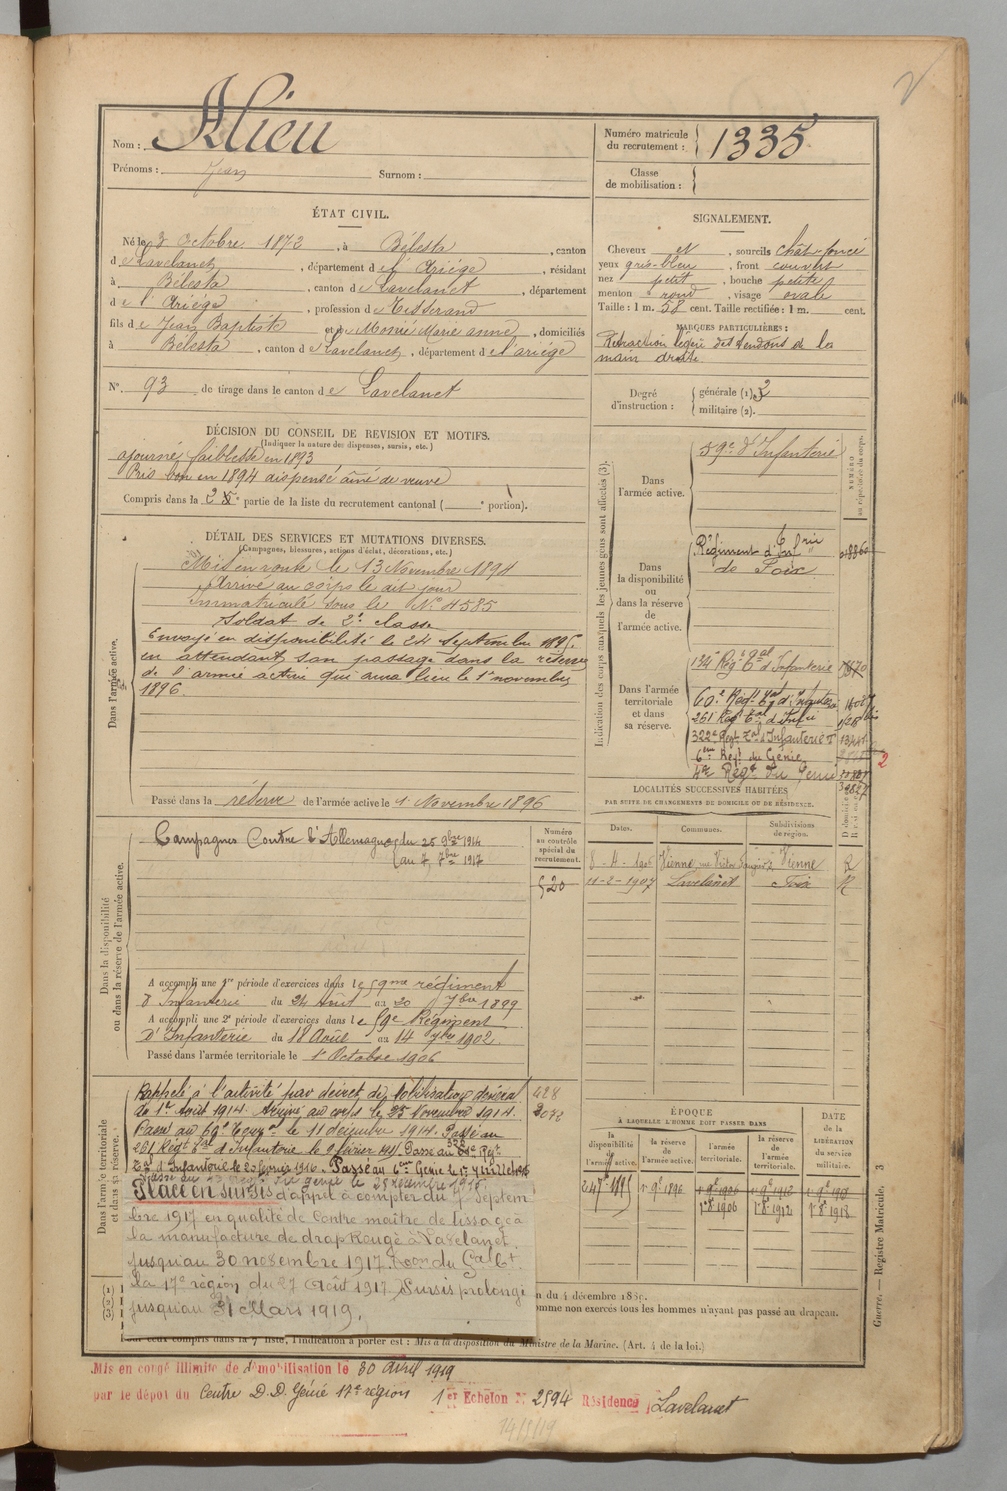 Nom : Alieu
Prénoms : Jean Surnom :
Numéro matricule du recrutement : 1335
Classe de mobilisation :
ÉTAT CIVIL.
Né le 3 Octobre 1872, à Bélesta, canton
de Lavelanet, département de l'Ariége, résidant
à Bélesta, canton de Lavelanet, département
de l'Ariége, profession de Tisserand
fils de Jean Baptiste et de Marie anne, domiciliés
à Bélesta, canton de Lavelanet, département de l'ariége
N°. 93 de tirage dans le canton de Lavelanet
SIGNALEMENT.
Cheveux et, sourcils chât-foncé
yeux gris-bleu, front couvert
nez petit, bouche petite
menton rond, visage ovale
Taille : 1 m. 58 cent. Taille rectifiée : 1 m. cent.
MARQUES PARTICULIÈRES :
Rétraction légère des tendons de la
main droite
Degré d'instruction : générale (1) 2
militaire (2).
DÉCISION DU CONSEIL DE REVISION ET MOTIFS.
(Indiquer la nature des dispenses, sursis, etc.)
ajourné faiblesse en 1893
Pris bon en 1894 dispensé aîné de veuve
Compris dans la 2e partie de la liste du recrutement cantonal ( e portion).
DÉTAIL DES SERVICES ET MUTATIONS DIVERSES.
(Campagnes, blessures, actions d'éclat, décorations, etc.)
Dans l'armée active.
Mis en route le 13 Novembre 1894
Arrivé au corps le dit jour
Immatriculé sous le N° 4585
Soldat de 2e classe
Envoyé en disponibilité le 24 Septembre 1895
en attendant son passage dans la réserve
de l'armée active qui aura lieu le 1er novembre
1896.
Passé dans la réserve de l'armée active le 1 Novembre 1896
Indication des corps auxquels les jeunes gens sont affectés (3).
NUMÉRO au répertoire du corps.
Dans l'armée active.
59e d'Infanterie
Dans la disponibilité ou dans la réserve de l'armée active.
Régiment d'Infrie
de Foix
Dans l'armée territoriale et dans sa réserve.
134e Régt Tal d'Infanterie
60e Régt Tal d'Infanterie
261 Régt Tal d'Infie
322e Régt Tal d'Infanterie
6me Régt du Génie
4e Régt du Génie
2
LOCALITÉS SUCCESSIVES HABITÉES
PAR SUITE DE CHANGEMENTS DE DOMICILE OU DE RÉSIDENCE.
Dates. Communes. Subdivisions de région.
1906 Vienne, rue Victor Vienne R
11-2-1907 Lavelanet Foix R
Dans la disponibilité ou dans la réserve de l'armée active.
Numéro au contrôle spécial du recrutement.
520
Campagnes Contre l'Allemagne du 25 9bre 1914
au 7 7bre 1917
A accompli une 1re période d'exercices dans le 59me régiment
d'Infanterie du 24 Août au 20 7bre 1899
A accompli une 2e période d'exercices dans le 59e Régiment
D'Infanterie du 18 Août au 14 7bre 1902.
Passé dans l'armée territoriale le 1er Octobre 1906
Dans l'armée territoriale et dans sa réserve.
428
Rappelé à l'activité par décret de Mobilisation général
du 1er Août 1914. Arrivé au corps le 25 Novembre 1914.
Passé au 60e le 11 décembre 1914. Passé au
261 Régt Tal d'Infanterie le 9 février 1915. Passé au 322e Régt
Tal d'Infanterie le 20 février 1916. Passé au 6me Génie le 17 Juillet 1916
Placé en sursis d'appel à compter du 7 Septem
bre 1917 en qualité de Contre maître de tissage à
la manufacture de drap Rougé à Lavelanet
jusqu'au 30 novembre 1917. du Gal Ct
la 17e région du 27 Août 1917. Sursis prolongé
jusqu'au 31 Mars 1919.
ÉPOQUE
À LAQUELLE L'HOMME DOIT PASSER DANS
la disponibilité de l'armée active. la réserve de l'armée active. l'armée territoriale. la réserve de l'armée territoriale.
DATE de la LIBÉRATION du service militaire.
24 7bre 1895 1er 9e 1896 1er 9e 1906 1er 9e 1912 1er 9e 1918
1er 8e 1906 1er 8e 1912 1er 8e 1918
(1)
(2)
(3)
n du 4 décembre 18
omme non exercés tous les hommes n'ayant pas passé au drapeau.
Pour ceux compris dans la 7e liste, l'indication à porter est : Mis à la disposition du Ministre de la Marine. (Art. 4 de la loi.)
Guerre. — Registre Matricule. 3
Mis en congé illimité de démobilisation le 30 Avril 1919
par le dépôt du Centre D.D. Génie 17e région 1er Echelon N° 2594 Résidence Lavelanet